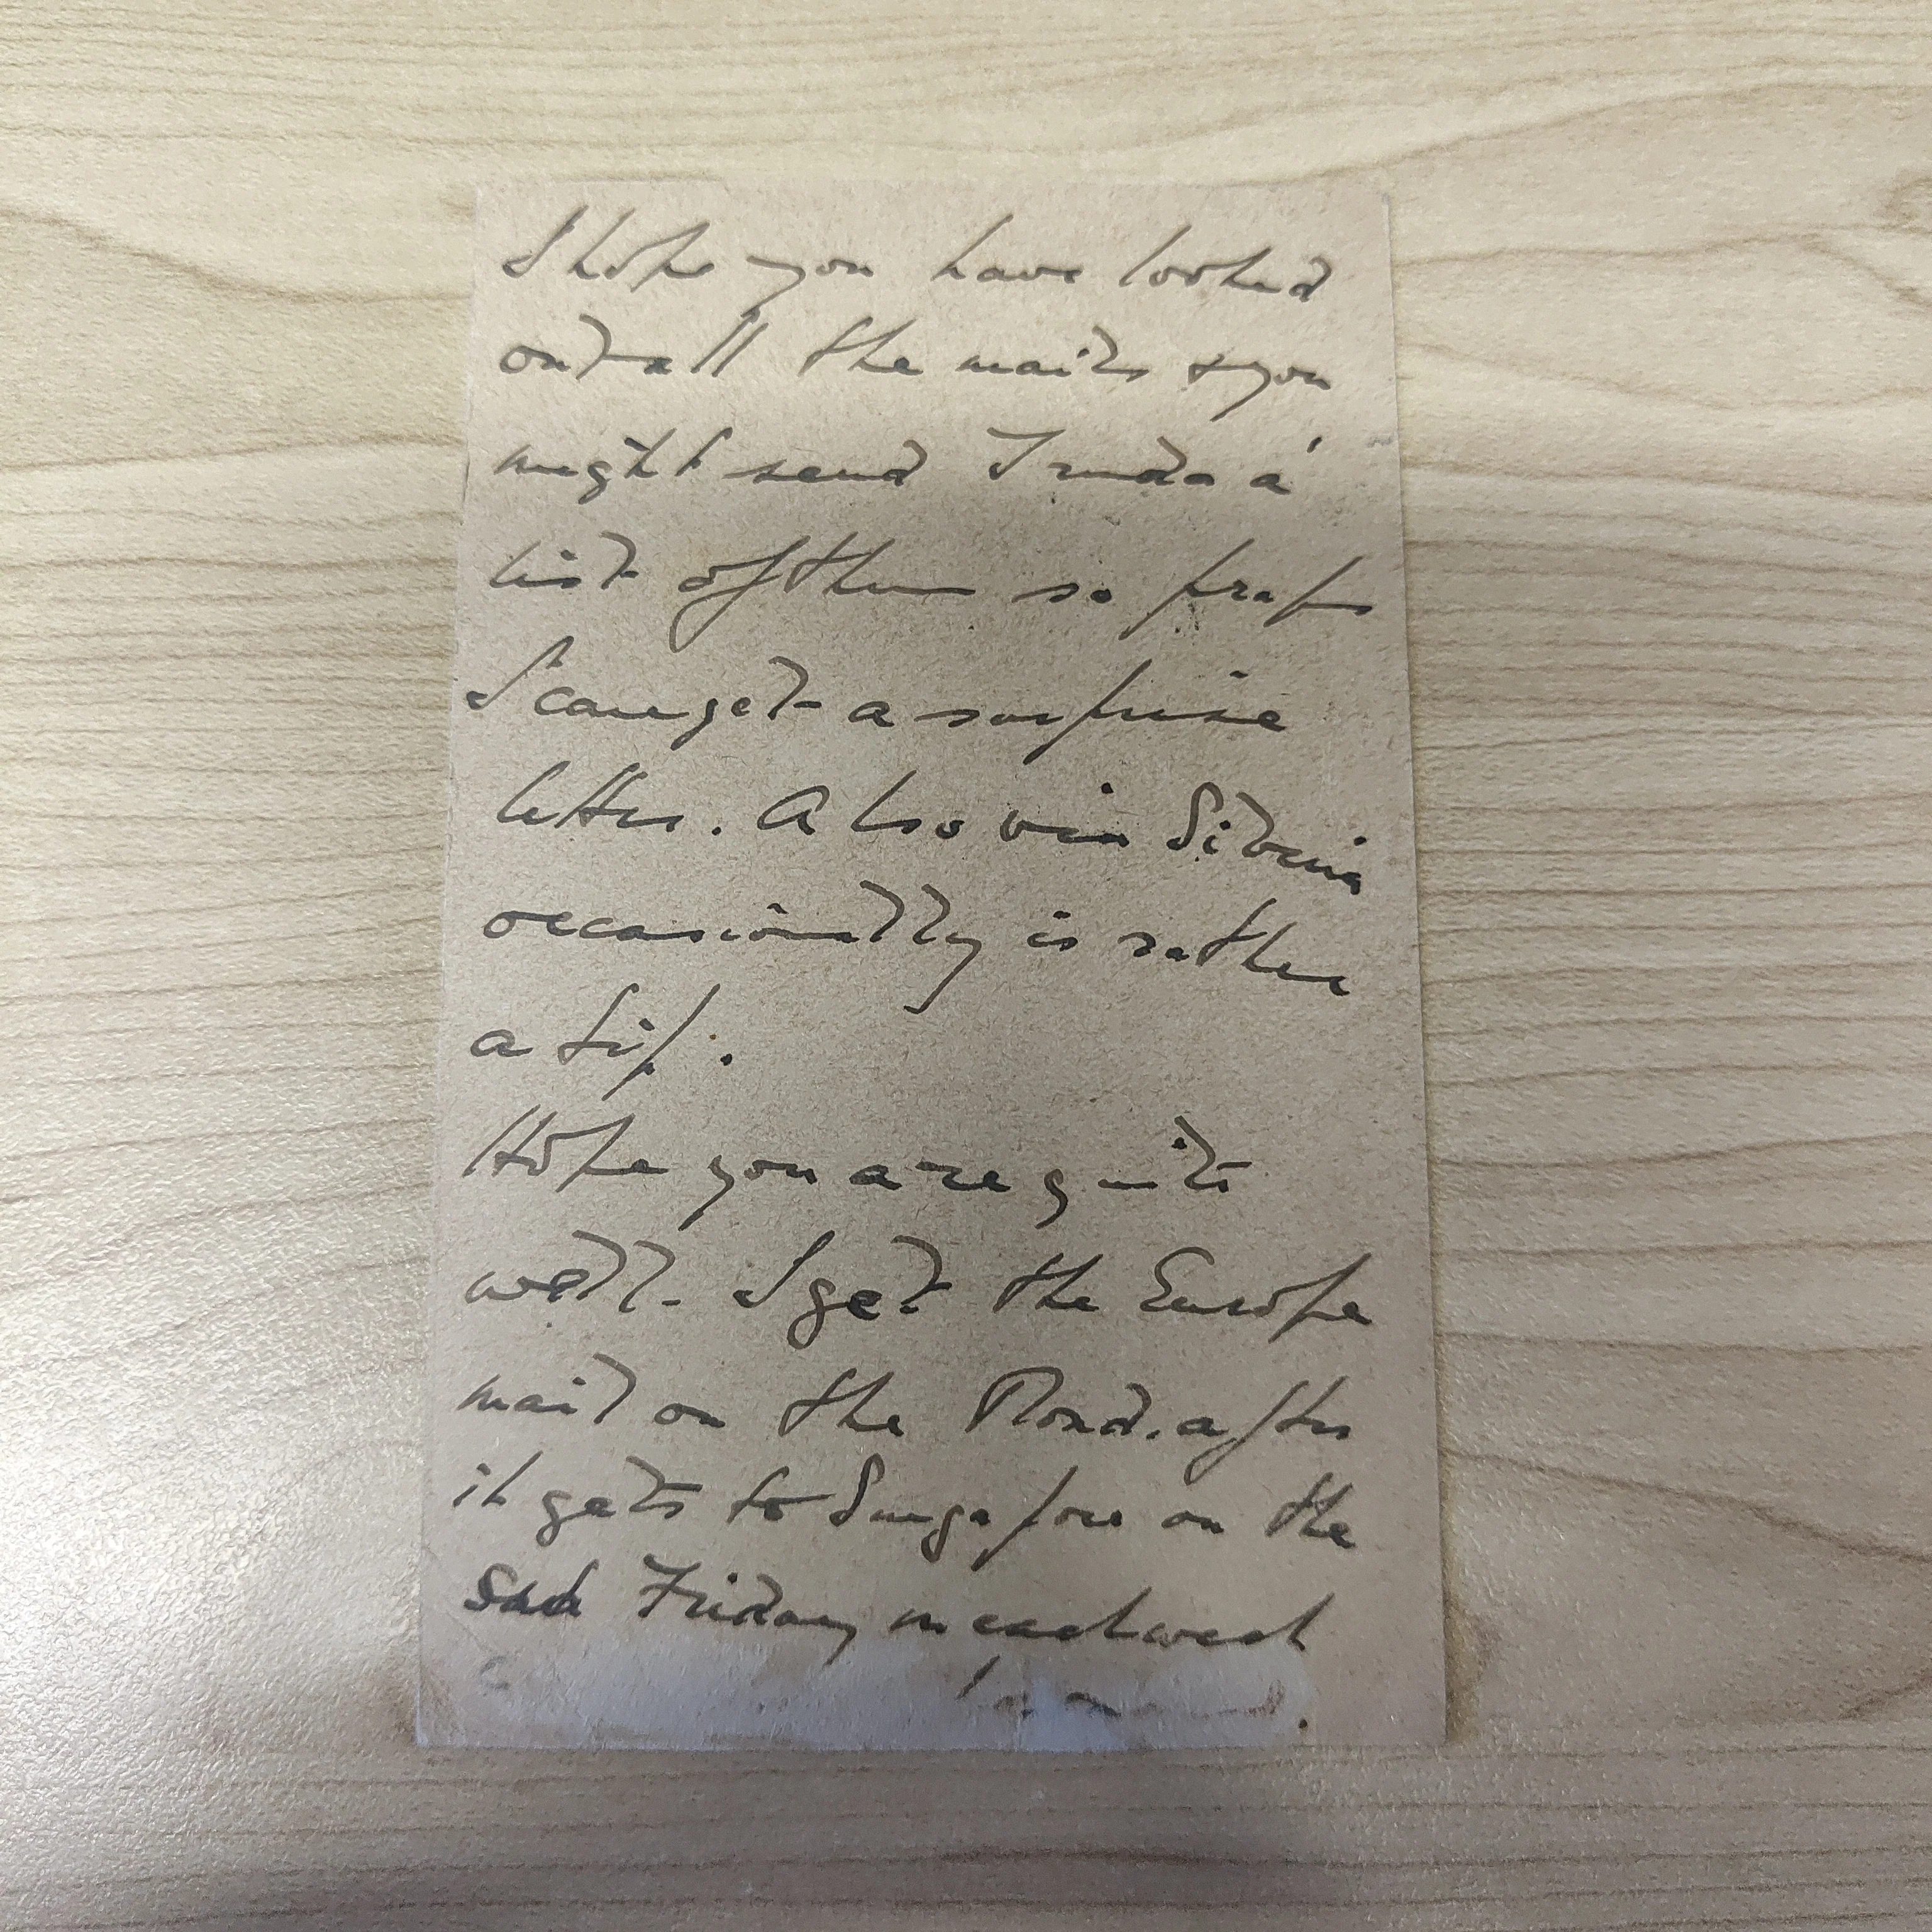 I hope you have looked
out all the mails & you
might send Truda a
list of them so praps
I can get a surprise
letter. Also via Siberia
occasionally is rather
a tip.
Hope you are quite
well. I get the Europe
mail on the Mond. after
it gets to Singapore on the
Friday in each week